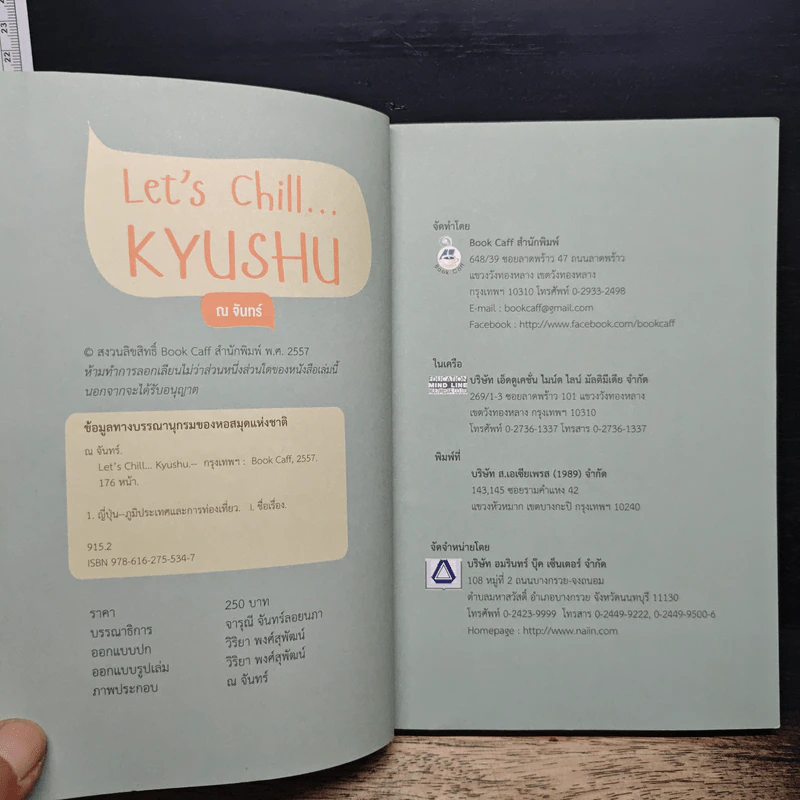 Let's Chill...
KYUSHU
ณ จันทร์
© สงวนลิขสิทธิ์ Book Caff สำนักพิมพ์ พ.ศ. 2557
ห้ามทำการลอกเลียนไม่ว่าส่วนหนึ่งส่วนใดของหนังสือเล่มนี้
นอกจากจะได้รับอนุญาต
ข้อมูลทางบรรณานุกรมของหอสมุดแห่งชาติ
ณ จันทร์.
Let's Chill... Kyushu.-- กรุงเทพฯ : Book Caff, 2557.
176 หน้า.
1. ญี่ปุ่น--ภูมิประเทศและการท่องเที่ยว. I. ชื่อเรื่อง.
915.2
ISBN 978-616-275-534-7
ราคา 250 บาท
บรรณาธิการ จารุณี จันทร์ลอยนภา
ออกแบบปก วิริยา พงศ์สุพัฒน์
ออกแบบรูปเล่ม วิริยา พงศ์สุพัฒน์
ภาพประกอบ ณ จันทร์
จัดทำโดย
Book Caff
Book Caff สำนักพิมพ์
648/39 ซอยลาดพร้าว 47 ถนนลาดพร้าว
แขวงวังทองหลาง เขตวังทองหลาง
กรุงเทพฯ 10310 โทรศัพท์ 0-2933-2498
E-mail : bookcaff@gmail.com
Facebook : http://www.facebook.com/bookcaff
ในเครือ
EDUCATION
MIND LINE
บริษัท เอ็ดดูเคชั่น ไมน์ด ไลน์ มัลติมีเดีย จำกัด
269/1-3 ซอยลาดพร้าว 101 แขวงวังทองหลาง
เขตวังทองหลาง กรุงเทพฯ 10310
โทรศัพท์ 0-2736-1337 โทรสาร 0-2736-1337
พิมพ์ที่
บริษัท ส.เอเซียเพรส (1989) จำกัด
143,145 ซอยรามคำแหง 42
แขวงหัวหมาก เขตบางกะปิ กรุงเทพฯ 10240
จัดจำหน่ายโดย
บริษัท อมรินทร์ บุ๊ค เซ็นเตอร์ จำกัด
108 หมู่ที่ 2 ถนนบางกรวย-จงถนอม
ตำบลมหาสวัสดิ์ อำเภอบางกรวย จังหวัดนนทบุรี 11130
โทรศัพท์ 0-2423-9999 โทรสาร 0-2449-9222, 0-2449-9500-6
Homepage : http://www.naiin.com
22
23